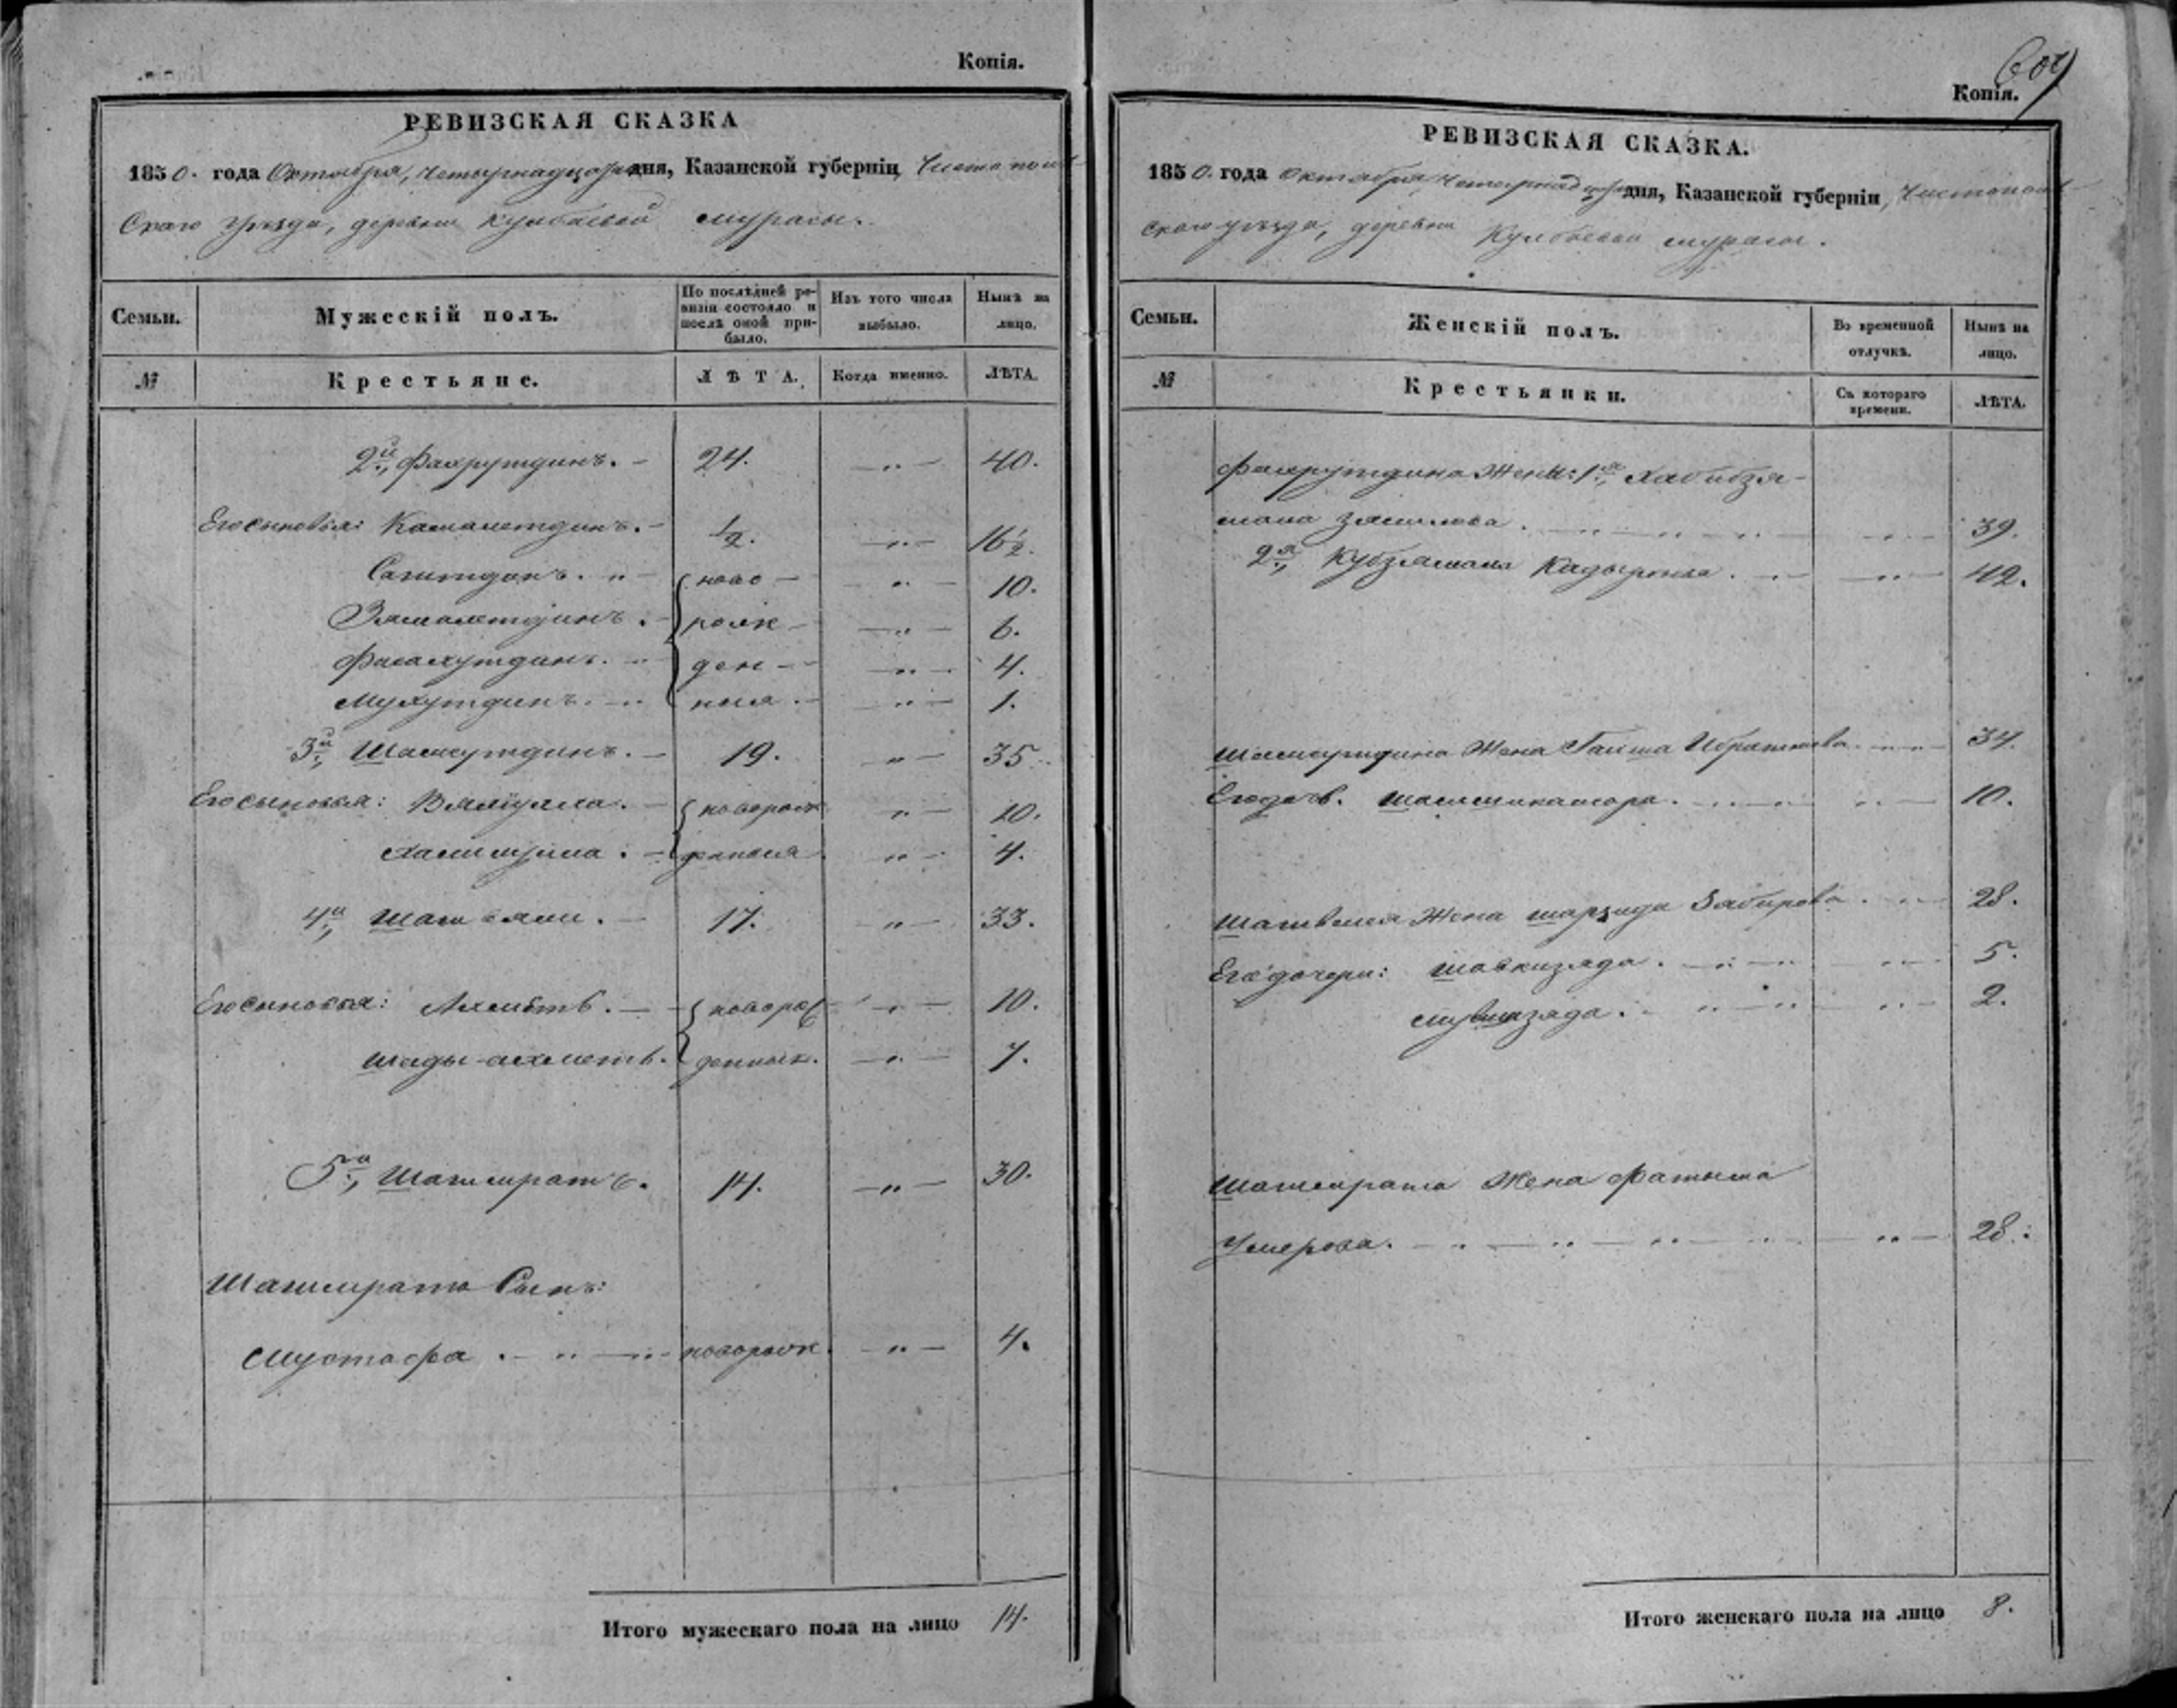 Копія.
РЕВИЗСКАЯ СКАЗКА
1850. года Октября, четырнадцатаго дня, Казанской губерніи, Чистополь-
скаго уезда, деревни Кулбаевой мурасы.
Семьи.
Мужескій полъ.
По послѣдней ре-
визіи состояло и
послѣ оной при-
было.
Изъ того числа
выбыло.
Нынѣ на
лицо.
№
Крестьяне.
ЛѢТА.
Когда именно.
ЛѢТА.
2й, Фахрутдинъ. 24. 40.
Его сыновья: Камалетдинъ. 1/2. 16 1/2.
ново 10.
Замалетдинъ. роже 6.
ден 4.
Мухутдинъ. ныя. 1.
3й, Шамсутдинъ. 19. 35.
Его сыновья: Вялиулла. новорож 10.
денныя 4.
4й, Шагвали. 17. 33.
Его сыновья: Ахметь. новорож 10.
шады-ахметь. денные. 7.
5й, Шагимратъ. 14. 30.
Шагимрата Сынъ:
Мустафа. новорож. 4.
Итого мужескаго пола на лицо 14.
Копія.
РЕВИЗСКАЯ СКАЗКА.
1850. года Октября, четырнадцатаго дня, Казанской губерніи, Чистополь-
скаго уезда, деревни Кулбаевой мурасы.
Семьи.
Женскій полъ.
Во временной
отлучкѣ.
Нынѣ на
лицо.
№
Крестьянки.
Съ котораго
времени.
ЛѢТА.
Фахрутдина Жены: 1я, Хабибзя-
мала 39.
2я, Кубзямала Кадырова. 42.
Шамсутдина Жена Гайша Ибрагимова. 34.
Его дочь. 10.
Шагвалея Жена Забирова. 28.
Его дочери: 5.
2.
Шагимрата Жена Фатыма
Умерова. 28.
Итого женскаго пола на лицо 8.